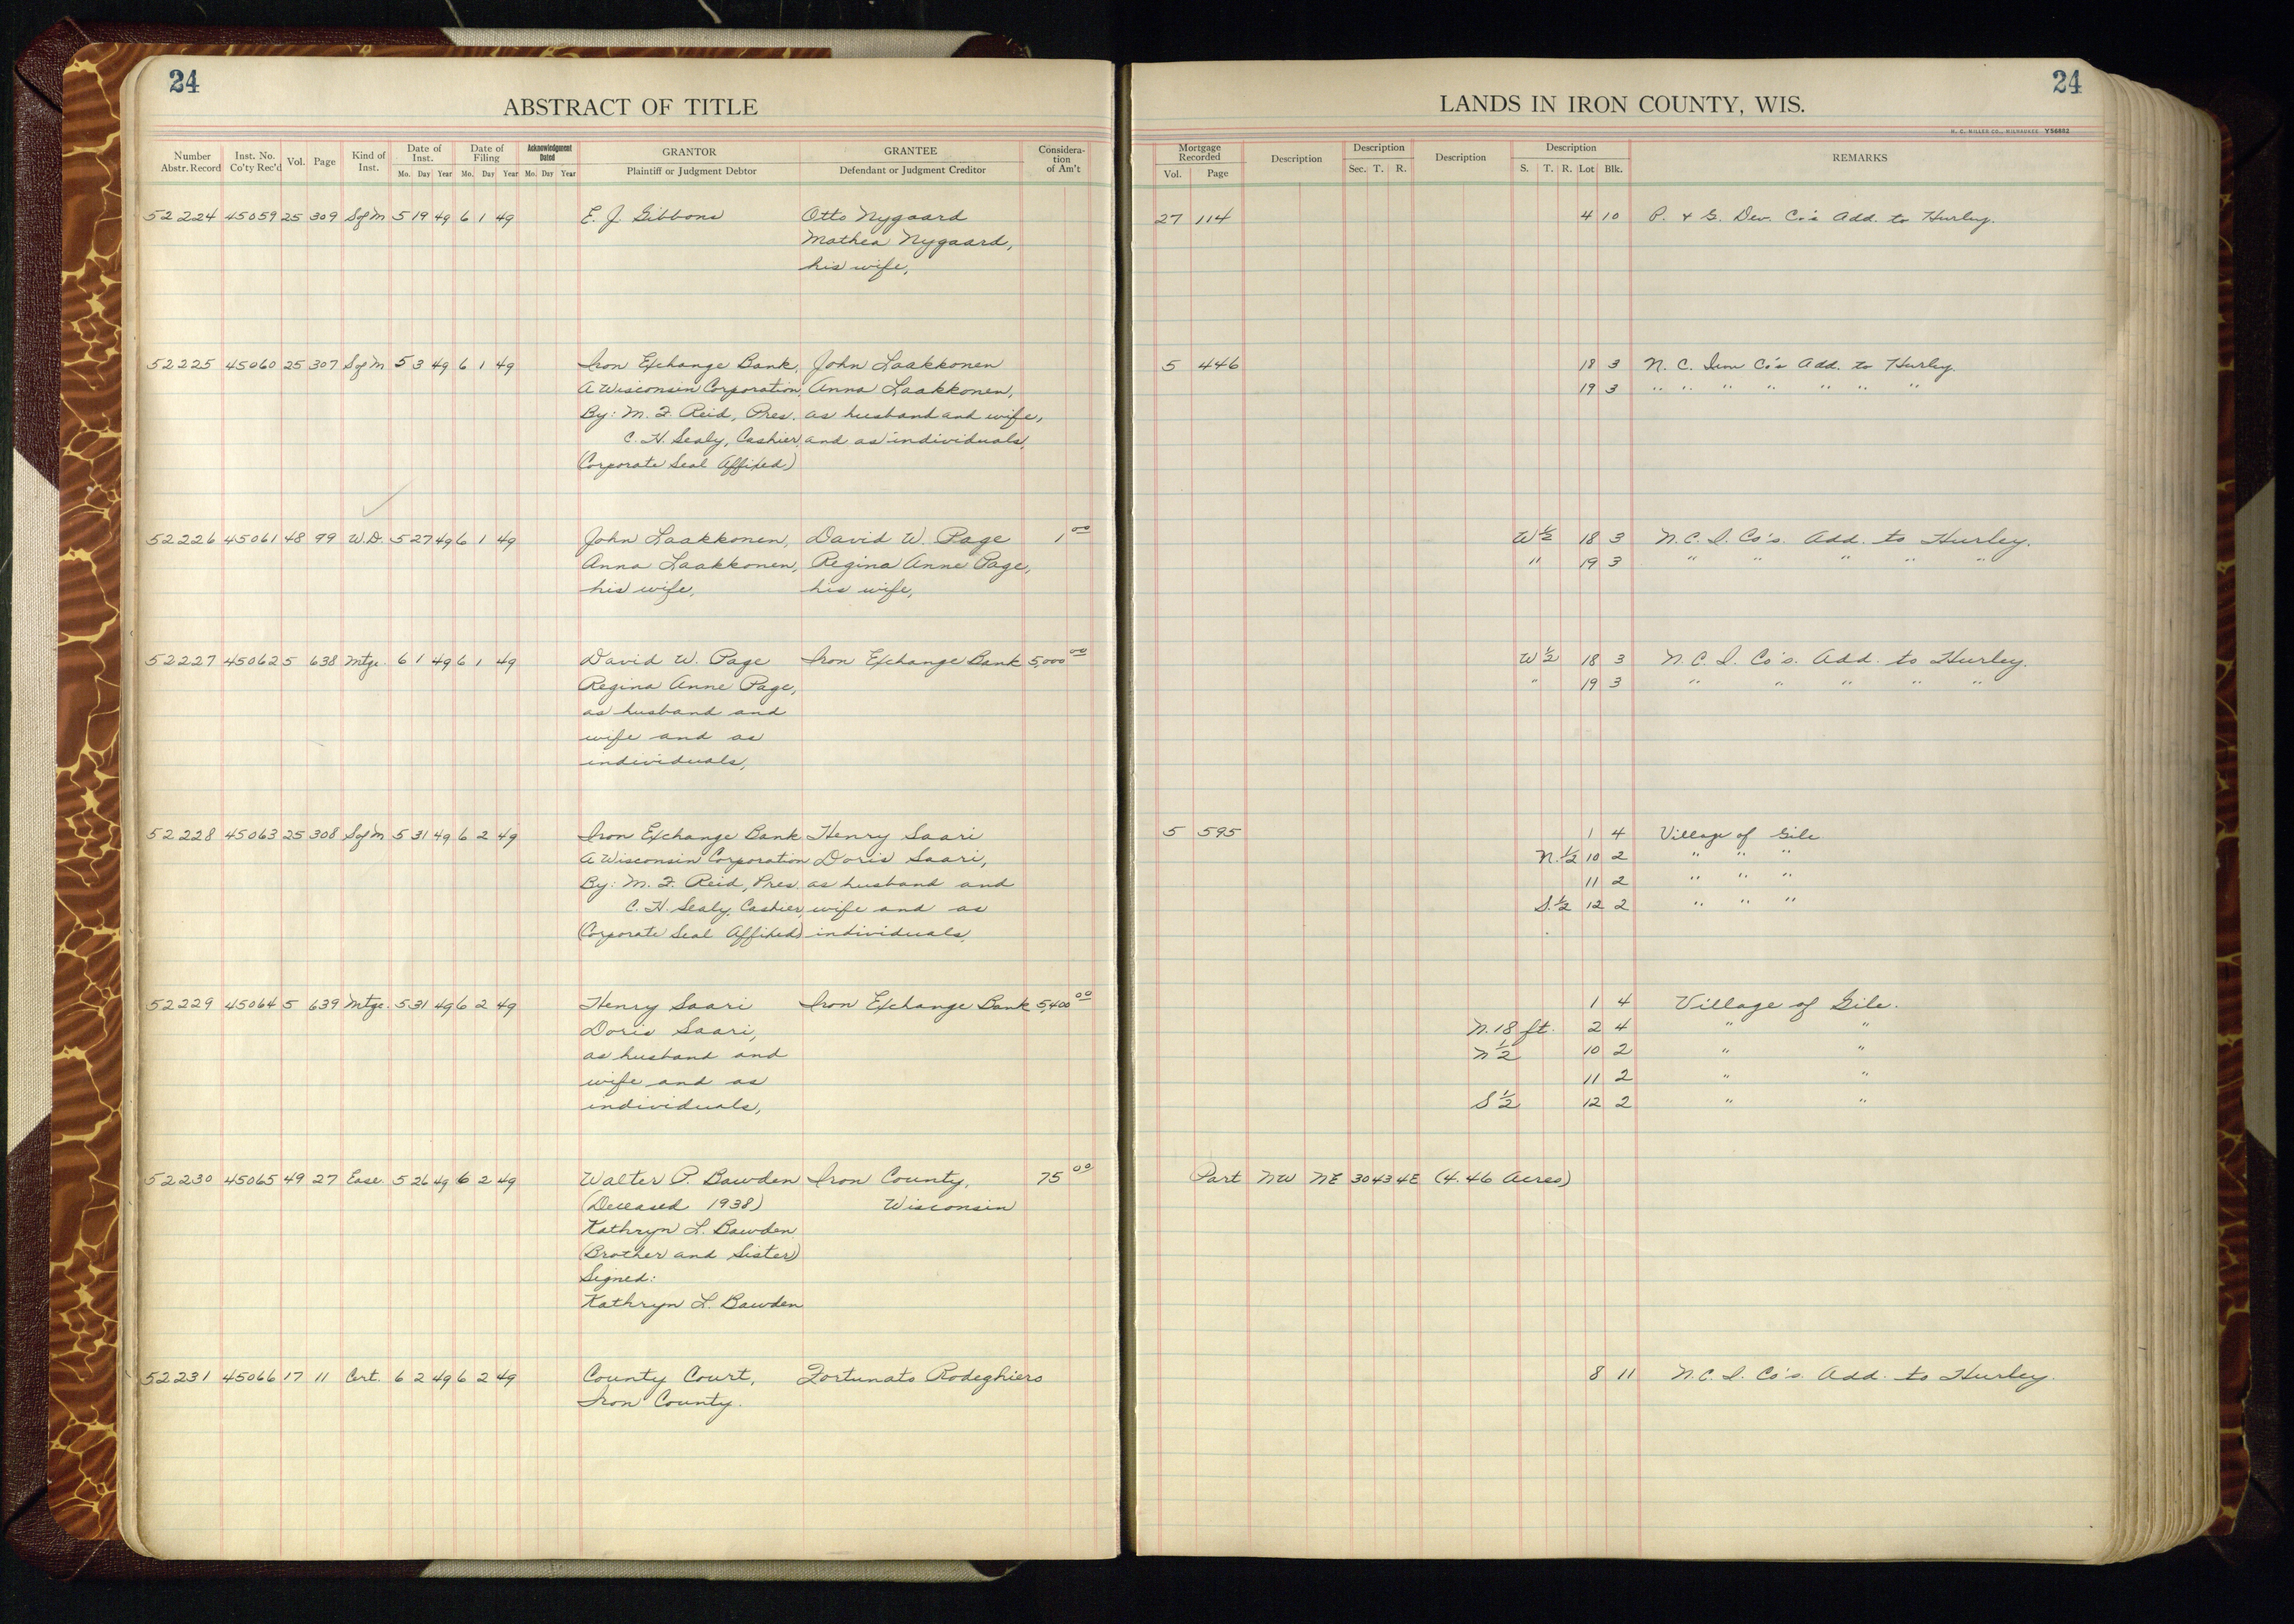 24
ABSTRACT OF TITLE
Number Abstr. Record
Inst. No. Co'ty Rec'd
Vol.
Page
Kind of Inst.
Date of Inst.
Mo. Day Year
Date of Filing
Mo. Day Year
Acknowledgment Dated
Mo. Day Year
GRANTOR
Plaintiff or Judgment Debtor
GRANTEE
Defendant or Judgment Creditor
Considera-tion of Am't
24
LANDS IN IRON COUNTY, WIS.
H. C. MILLER CO., MILWAUKEE Y56882
Mortgage Recorded
Vol. Page
Description
Description
Sec. T. R.
Description
Description
S. T. R. Lot Blk.
REMARKS
52224 45059 25 309 Sof M 5 19 49 6 1 49 E. J. Gibbons Otto Nygaard 27 114 4 10 P. & G. Dev. Co's Add. to Hurley.
Mathea Nygaard,
his wife,
52225 45060 25 307 Sof M 5 3 49 6 1 49 Iron Exchange Bank, John Laakkonen 5 446 18 3 N. C. Iron Co's Add. to Hurley.
A Wisconsin Corporation, Anna Laakkonen, 19 3 " " " " " " "
By: M. F. Reid, Pres. as husband and wife,
C. H. Sealy, Cashier, and as individuals,
(Corporate Seal Affixed)
52226 45061 48 99 W.D. 5 27 49 6 1 49 John Laakkonen, David W. Page 1 00 W 1/2 18 3 N. C. I. Co's. Add. to Hurley.
Anna Laakkonen, Regina Anne Page, " 19 3 " " " " "
his wife, his wife,
52227 45062 5 638 Mtge. 6 1 49 6 1 49 David W. Page Iron Exchange Bank 5,000 00 W 1/2 18 3 N. C. I. Co's. Add. to Hurley.
Regina Anne Page, " 19 3 " " " " "
as husband and
wife and as
individuals,
52228 45063 25 308 Sof M 5 31 49 6 2 49 Iron Exchange Bank Henry Saari 5 595 1 4 Village of Gile
A Wisconsin Corporation Doris Saari, N. 1/2 10 2 " " "
By: M. F. Reid, Pres. as husband and 11 2 " " "
C. H. Sealy, Cashier, wife and as S. 1/2 12 2 " " "
(Corporate Seal Affixed) individuals,
52229 45064 5 639 Mtge. 5 31 49 6 2 49 Henry Saari Iron Exchange Bank 5,400 00 1 4 Village of Gile.
Doris Saari, N. 18 ft. 2 4 " "
as husband and N 1/2 10 2 " "
wife and as 11 2 " "
individuals, S 1/2 12 2 " "
52230 45065 49 27 Ease. 5 26 49 6 2 49 Walter P. Bawden Iron County, 75 00 Part NW NE 30 43 4E (4.46 Acres)
(Deceased 1938) Wisconsin
Kathryn L. Bawden
(Brother and Sister)
Signed:
Kathryn L. Bawden
52231 45066 17 11 Cert. 6 2 49 6 2 49 County Court, Fortunato Rodeghiero 8 11 N. C. I. Co's. Add. to Hurley.
Iron County.